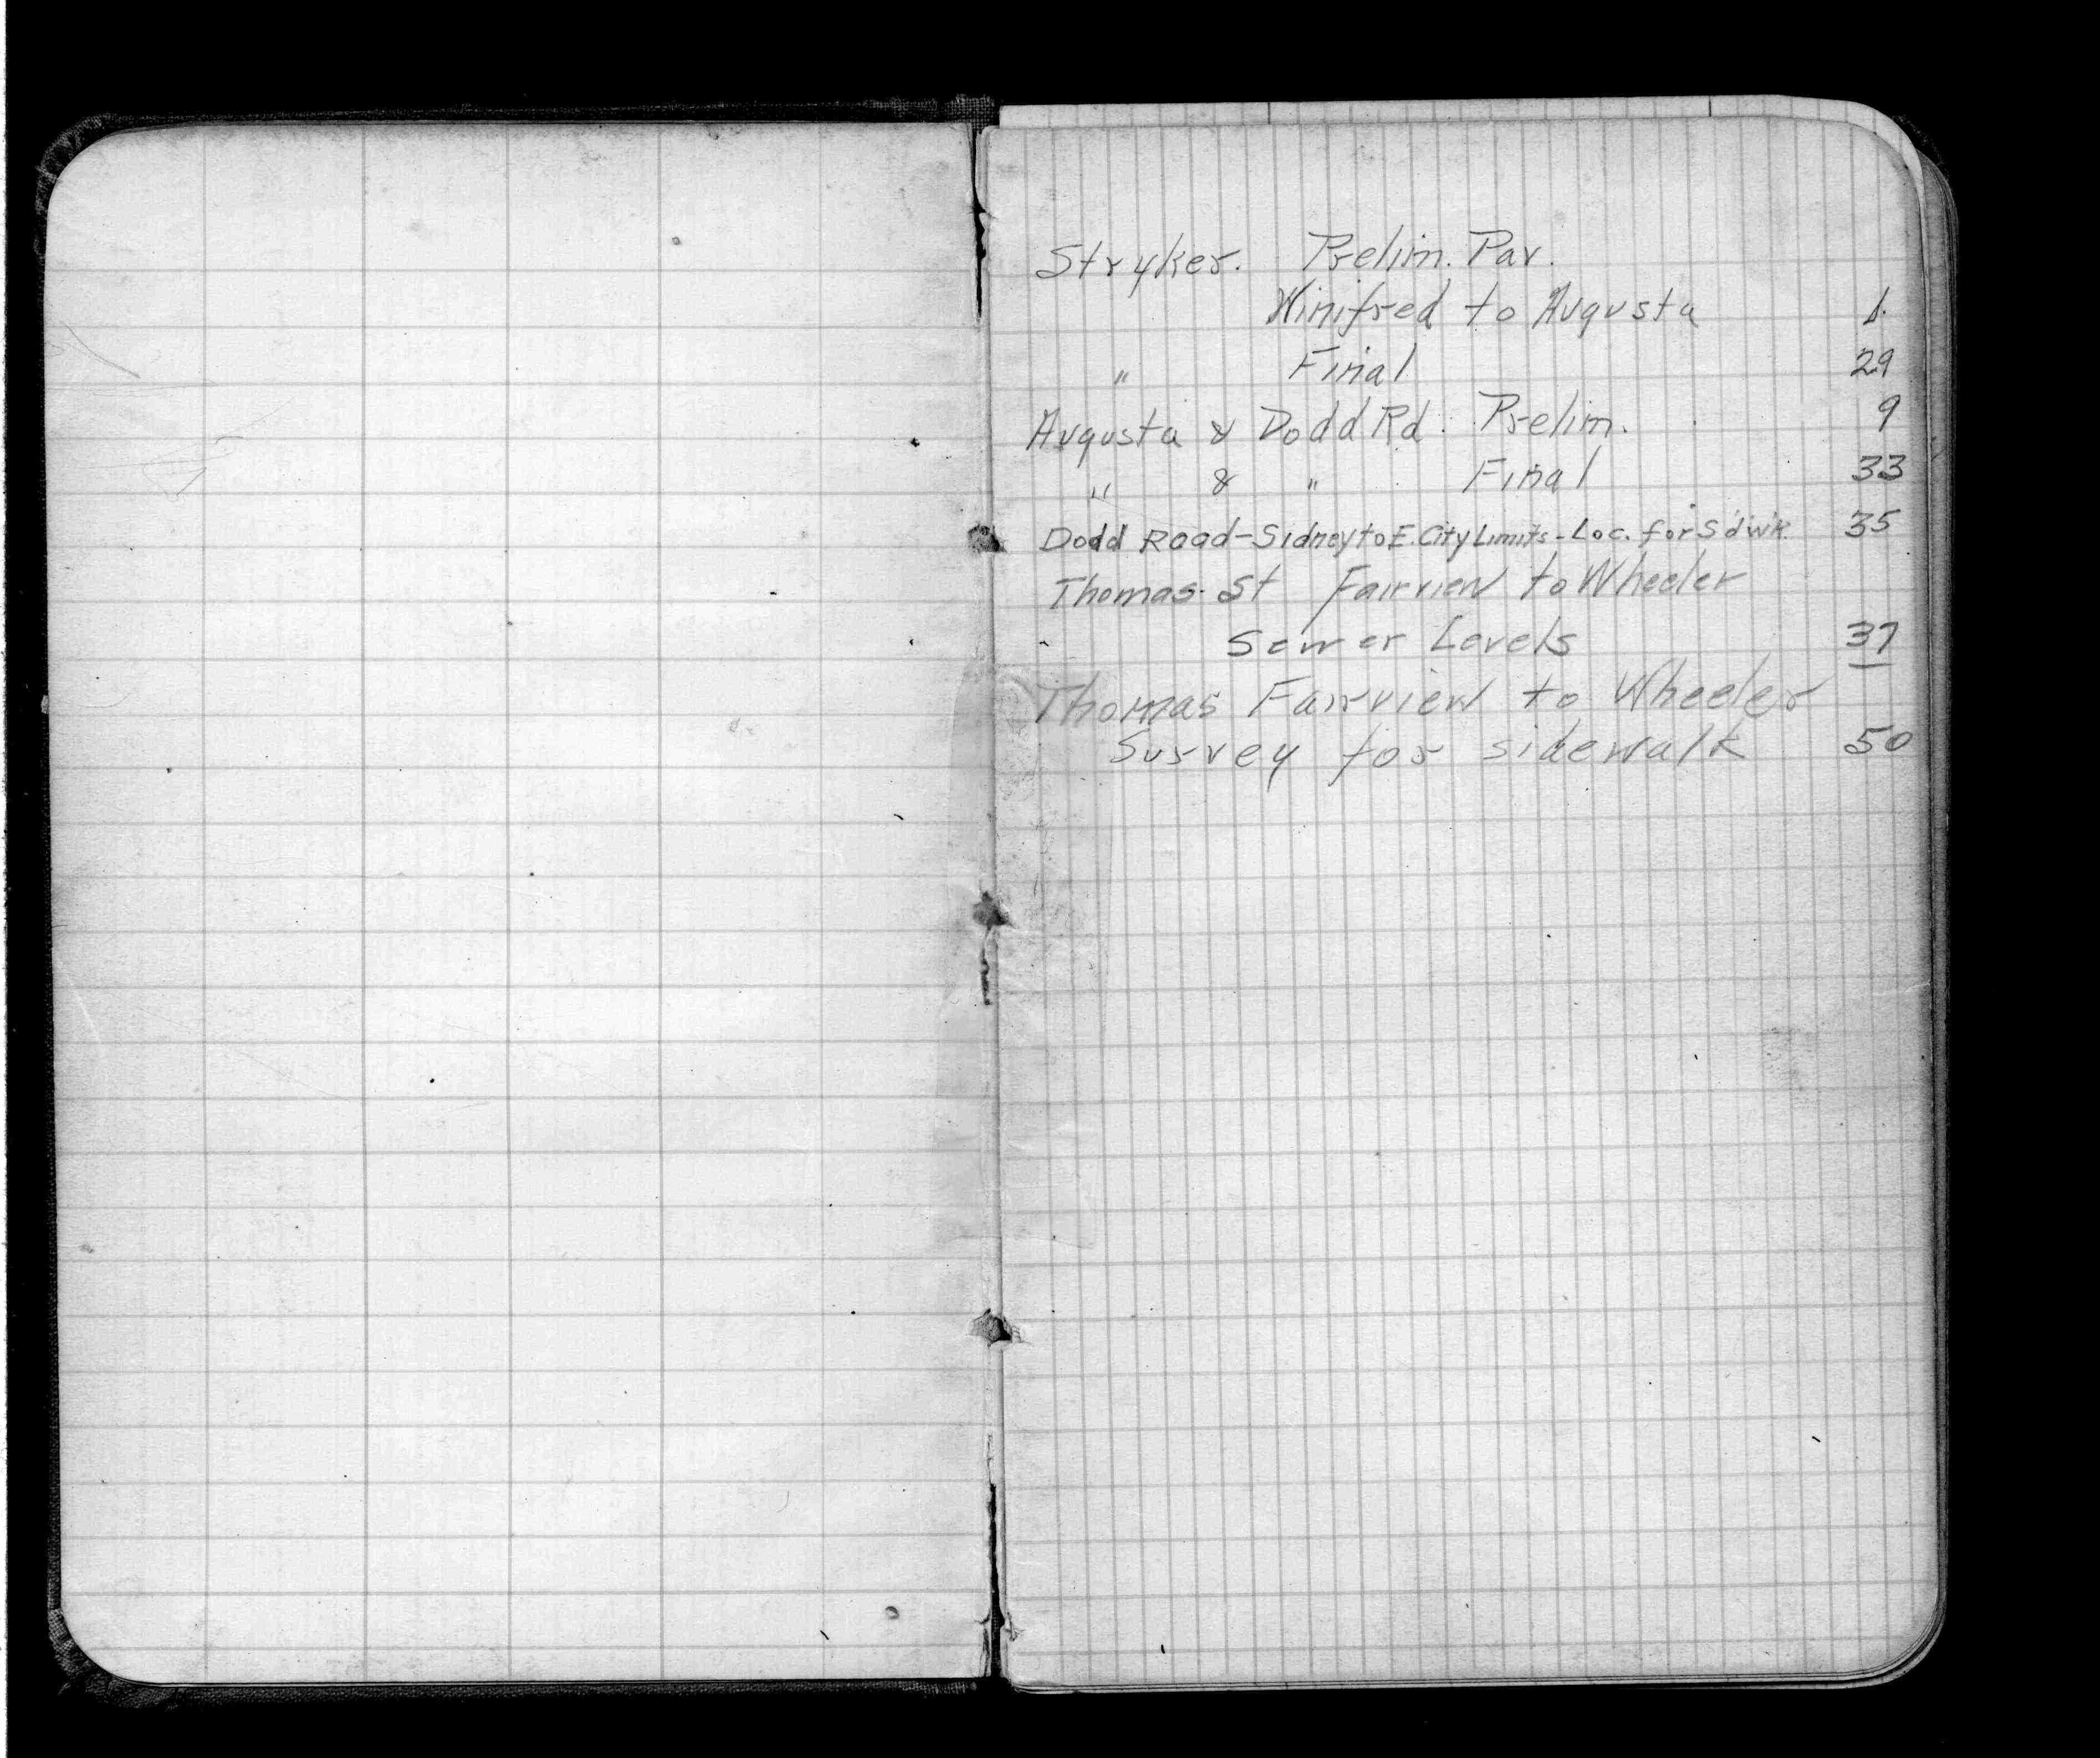 Stryker. Prelim. Pav.
Winifred to Augusta 1.
" Final 29
Augusta & Dodd Rd. Prelim. 9
" & " Final 33
Dodd Road-Sidney to E. City Limits-Loc. for S'dw'k. 35
Thomas St Fairview to Wheeler
Sewer Levels 37
Thomas Fairview to Wheeler
Survey for sidewalk 50